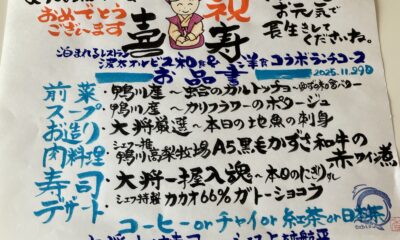 おめでとう
ございます
祝
喜寿
お元気で
長生きして
くださいな。
泊まれるレストラン
洋食コラボランチコース
お品書
2025.11.29
前菜・鴨川産～蛤のカルトッチョ
スープ・鴨川産～カリフラワーのポタージュ
お造り・大将厳選～本日の地魚の刺身
肉料理・シェフ一推 鴨川高梨牧場A5黒毛かずさ和牛の赤ワイン煮
寿司・大将一握入魂～本日のにぎり
デザート・シェフ特製 カカオ66%ガトーショコラ
コーヒーorチャイor紅茶or日本茶